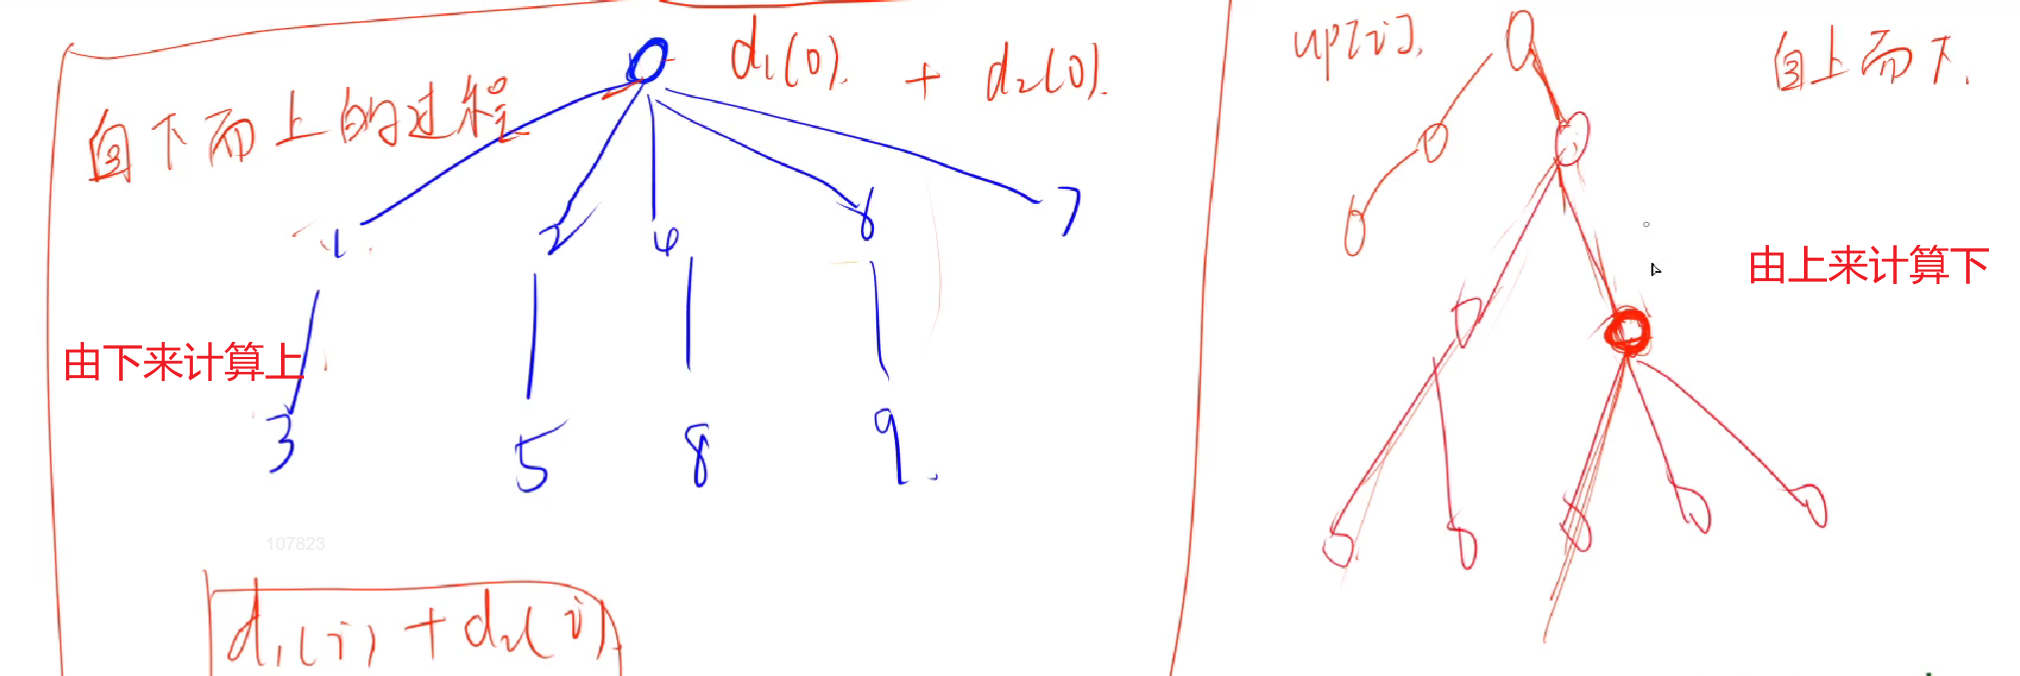 自下而上的过程
d₁(0). + d₂(0).
1 2 4 6 7
由下来计算上
3 5 8 9.
107823
d₁(i) + d₂(i)
up[i].
自上而下.
由上来计算下